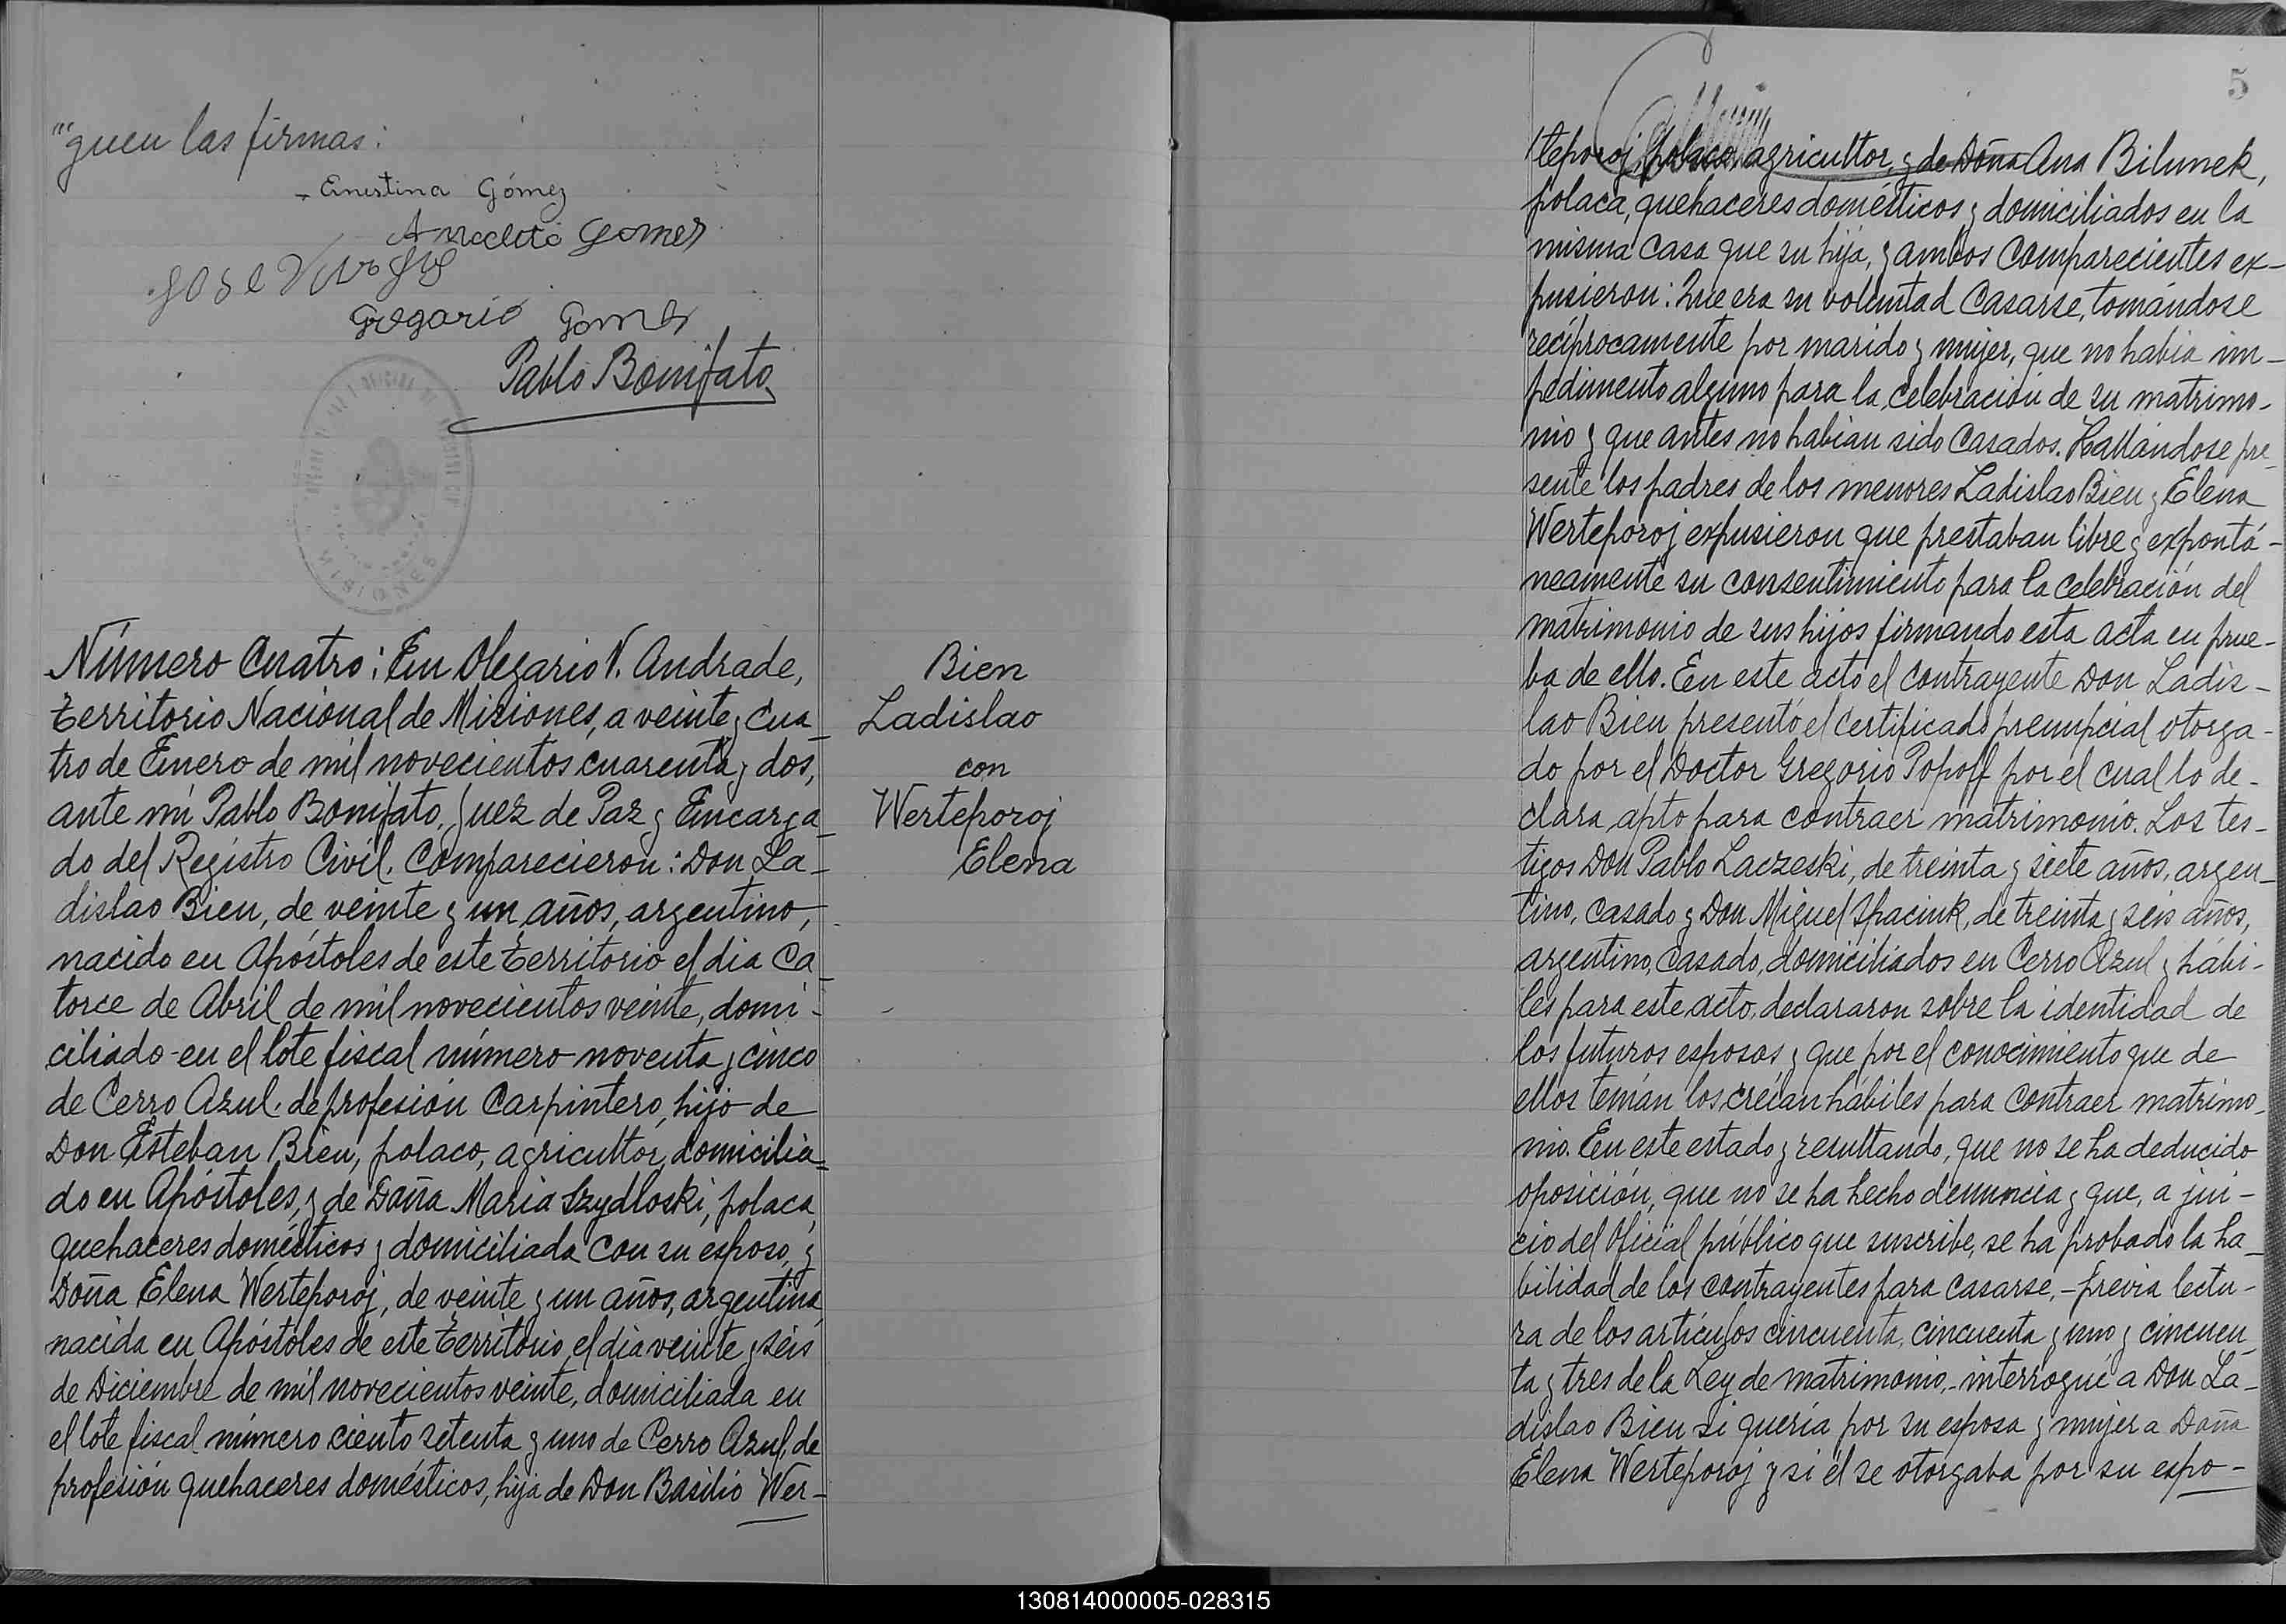 guen las firmas:
Ernestina Gómez
Anacleto Gomes
José
Gregorio Gomes
Pablo Bonifato
MISIONES
Número Cuatro: En Olegario V. Andrade,
territorio Nacional de Misiones, a veinte y cua_
tro de Enero de mil novecientos cuarenta y dos,
ante mi Pablo Bonifato, Juez de Paz y Encarga_
do del Registro Civil. Comparecieron: Don La_
dislao Bien, de veinte y un años, argentino,
nacido en Apóstoles de este territorio el dia Ca_
torce de Abril de mil novecientos veinte, domi-
ciliado en el lote fiscal número noventa y cinco
de Cerro Azul. de profesión Carpintero, hijo de
Don Esteban Bien, polaco, agricultor, domicilia_
do en Apóstoles, y de Doña Maria Szydloski, polaca,
quehaceres domésticos y domiciliada con su esposo, y
Doña Elena Werteporoj, de veinte y un años, argentina,
nacida en Apóstoles de este territorio el dia veinte y seis
de Diciembre de mil novecientos veinte, domiciliada en
el lote fiscal número ciento setenta y uno de Cerro Azul, de
profesión quehaceres domésticos, hija de Don Basilio Wer-
Bien
Ladislao
con
Werteporoj
Elena
5
teporoj, polaco, agricultor, y de Doña Ana Bilunek,
polaca, quehaceres domésticos y domiciliados en la
misma casa que su hija, y ambos comparecientes ex-
pusieron: Que era su voluntad Casarse, tomándose
recíprocamente por marido y mujer, que no habia im-
pedimento alguno para la celebración de su matrimo-
nio y que antes no habian sido Casados. Hallándose pre_
sente los padres de los menores Ladislao Bien y Elena
Werteporoj expusieron que prestaban libre y expontá-
neamente su consentimiento para la celebración del
matrimonio de sus hijos firmando esta acta en prue-
ba de ello. En este acto el contrayente Don Ladis-
lao Bien presentó el certificado prenupcial otorga-
do por el Doctor Gregorio Popoff por el cual lo de-
clara apto para contraer matrimonio. Los tes-
tigos Don Pablo Laczeski, de treinta y siete años, argen_
tino, casado y Don Miguel Spaciuk, de treinta y seis años,
argentino, casado, domiciliados en Cerro Azul y hábi-
les para este acto, declararon sobre la identidad de
los futuros esposos y que por el conocimiento que de
ellos tenían los creían hábiles para contraer matrimo_
nio. En este estado y resultando, que no se ha deducido
oposición, que no se ha hecho denuncia y que, a jui-
cio del Oficial público que suscribe, se ha probado la ha_
bilidad de los contrayentes para casarse,- previa lectu-
ra de los artículos cincuenta, cincuenta y uno y cincuen_
ta y tres de la Ley de matrimonio,- interrogué a Don La_
dislao Bien si quería por su esposa y mujer a Doña
Elena Werteporoj y si él se otorgaba por su espo-
130814000005-028315